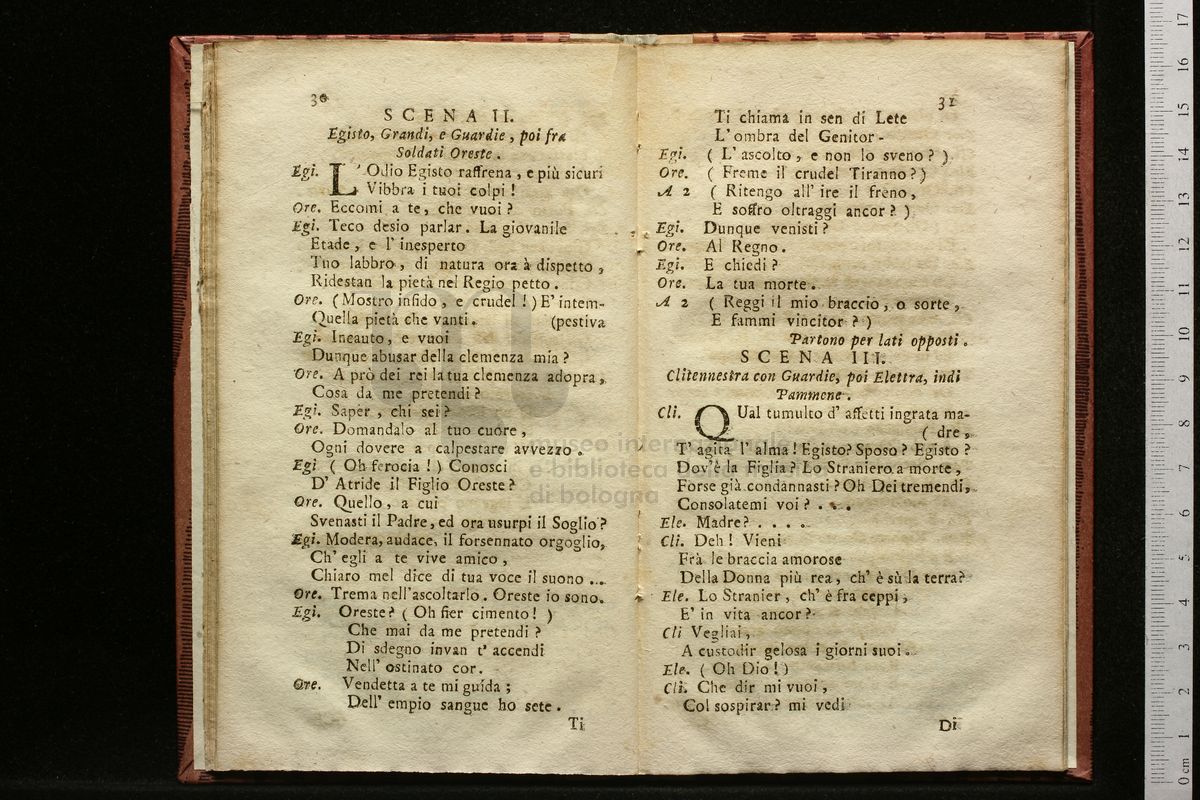 30
SCENA II.
Egisto, Grandi, e Guardie, poi fra
Soldati Oreste.
Egi. L'Odio Egisto raffrena, e più sicuri
Vibbra i tuoi colpi!
Ore. Eccomi a te, che vuoi?
Egi. Teco desio parlar. La giovanile
Etade, e l' inesperto
Tuo labbro, di natura ora à dispetto,
Ridestan la pietà nel Regio petto.
Ore. (Mostro infido, e crudel!) E' intem-
Quella pietà che vanti. (pestiva
Egi. Incauto, e vuoi
Dunque abusar della clemenza mia?
Ore. A prò dei rei la tua clemenza adopra,
Cosa da me pretendi?
Egi. Saper, chi sei?
Ore. Domandalo al tuo cuore,
Ogni dovere a calpestare avvezzo.
Egi (Oh ferocia!) Conosci
D' Atride il Figlio Oreste?
Ore. Quello, a cui
Svenasti il Padre, ed ora usurpi il Soglio?
Egi. Modera, audace, il forsennato orgoglio,
Ch' egli a te vive amico,
Chiaro mel dice di tua voce il suono...
Ore. Trema nell'ascoltarlo. Oreste io sono.
Egi. Oreste? (Oh fier cimento!)
Che mai da me pretendi?
Di sdegno invan t' accendi
Nell' ostinato cor.
Ore. Vendetta a te mi guida;
Dell' empio sangue ho sete.
Ti
31
Ti chiama in sen di Lete
L'ombra del Genitor-
Egi. (L'ascolto, e non lo sveno?)
Ore. (Freme il crudel Tiranno?)
A 2 (Ritengo all' ire il freno,
E soffro oltraggi ancor?)
Egi. Dunque venisti?
Ore. Al Regno.
Egi. E chiedi?
Ore. La tua morte.
A 2 (Reggi il mio braccio, o sorte,
E fammi vincitor?)
Partono per lati opposti.
SCENA III.
Clitennestra con Guardie, poi Elettra, indi
Pammene.
Cli. QUal tumulto d' affetti ingrata ma-
(dre,
T' agita l' alma! Egisto? Sposo? Egisto?
Dov'è la Figlia? Lo Straniero a morte,
Forse già condannasti? Oh Dei tremendi,
Consolatemi voi? ....
Ele. Madre? ....
Cli. Deh! Vieni
Frà le braccia amorose
Della Donna più rea, ch' è sù la terra?
Ele. Lo Stranier, ch' è fra ceppi,
E' in vita ancor?
Cli Vegliai,
A custodir gelosa i giorni suoi.
Ele. (Oh Dio!)
Cli. Che dir mi vuoi,
Col sospirar? mi vedi
Di
museo internazionale
e biblioteca
di bologna
0 cm 1 2 3 4 5 6 7 8 9 10 11 12 13 14 15 16 17